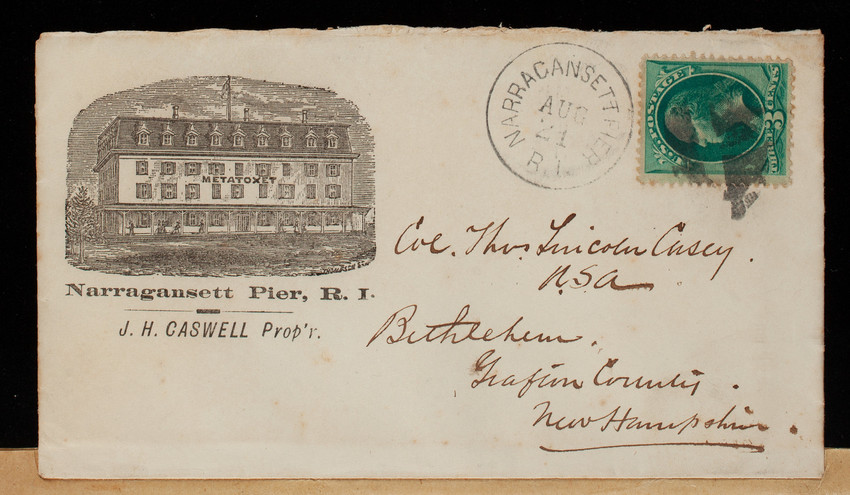 METATOXET
Narragansett Pier, R. I.
J. H. CASWELL Prop'r.
NARRAGANSETT PIER
AUG
21
R.I.
U.S. POSTAGE
3
Col. Thos. Lincoln Casey.
U.S.A
Bethlehem.
Grafton County.
New Hampshire.